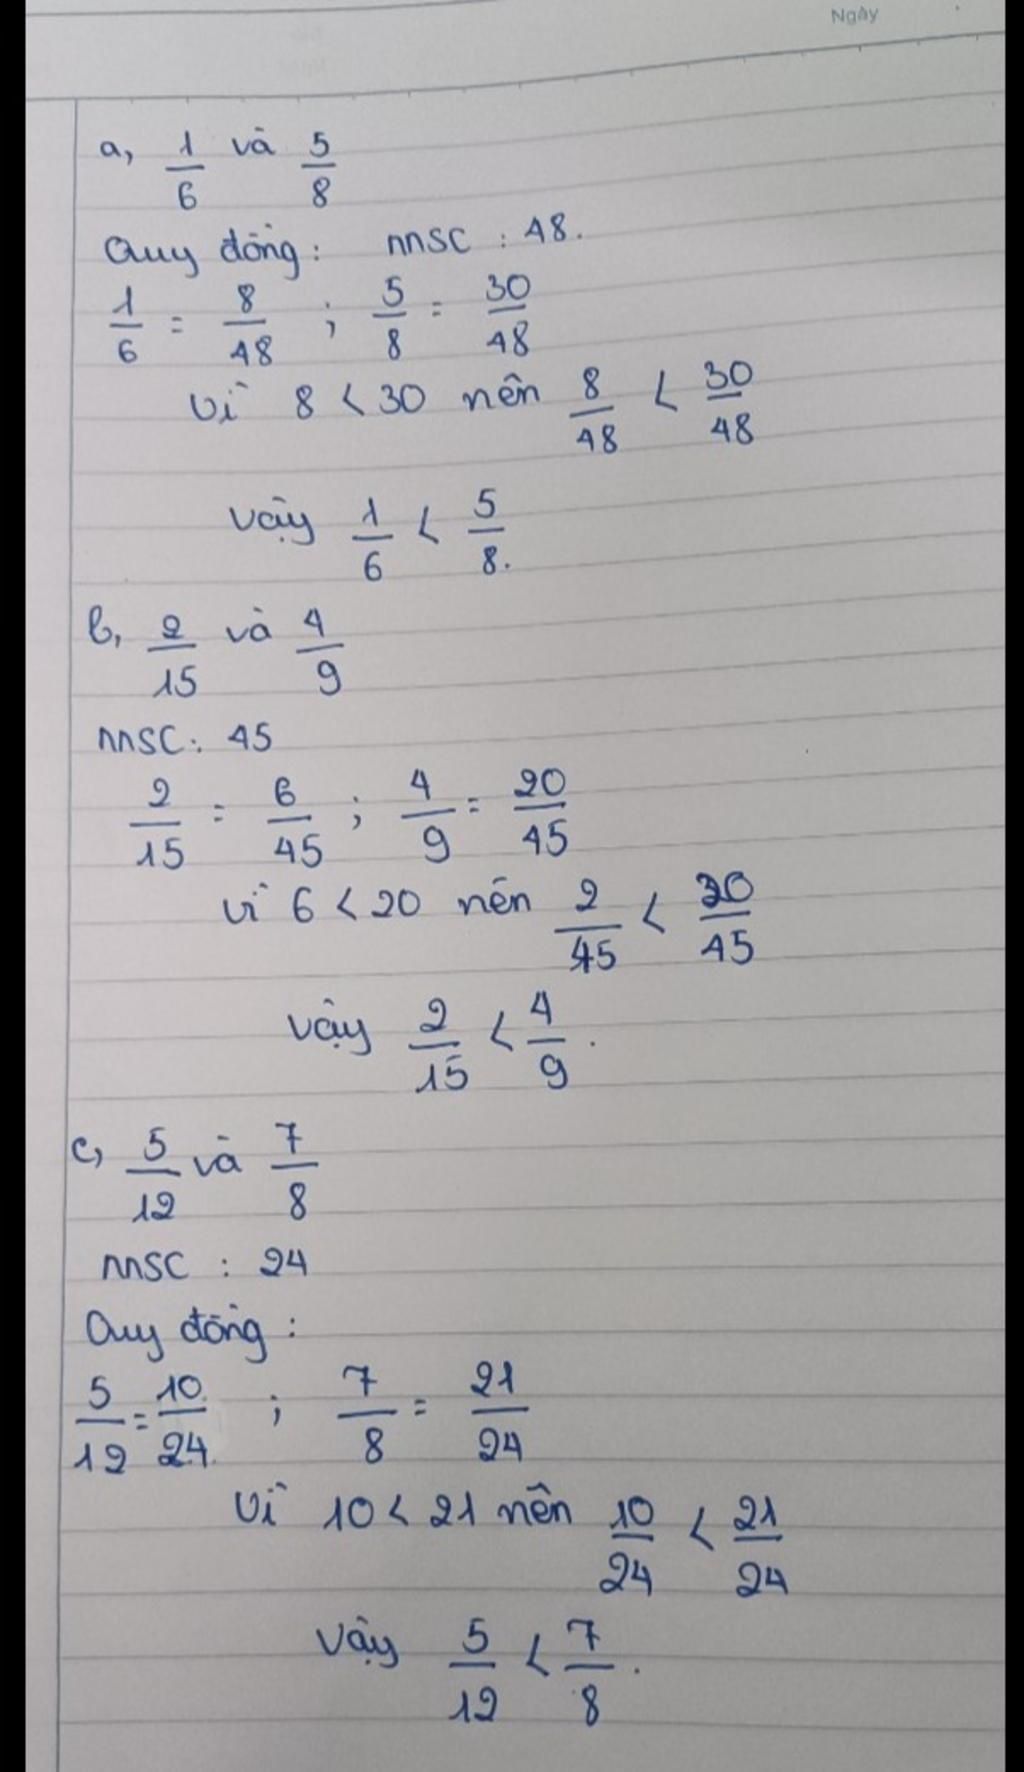 Ngày
a, 1/6 và 5/8
Quy đồng : MSC : 48.
1/6 = 8/48 ; 5/8 = 30/48
Vì 8 < 30 nên 8/48 < 30/48
Vậy 1/6 < 5/8.
b, 2/15 và 4/9
MSC : 45
2/15 = 6/45 ; 4/9 = 20/45
Vì 6 < 20 nên 2/45 < 20/45
Vậy 2/15 < 4/9.
c, 5/12 và 7/8
MSC : 24
Quy đồng :
5/12 = 10/24 ; 7/8 = 21/24
Vì 10 < 21 nên 10/24 < 21/24
Vậy 5/12 < 7/8.